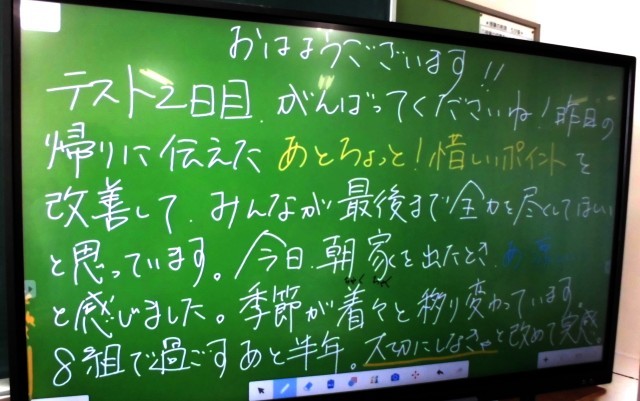 おはようございます!!
テスト2日目、がんばってくださいね!昨日の
帰りに伝えた あとちょっと!惜しいポイントを
改善して、みんなが最後まで全力を尽くしてほしい
と思っています。今日、朝家を出たとき、
と感じました。季節が着々と移り変わっています。
8組で過ごすあと半年。大切にしなきゃと改めて実感。